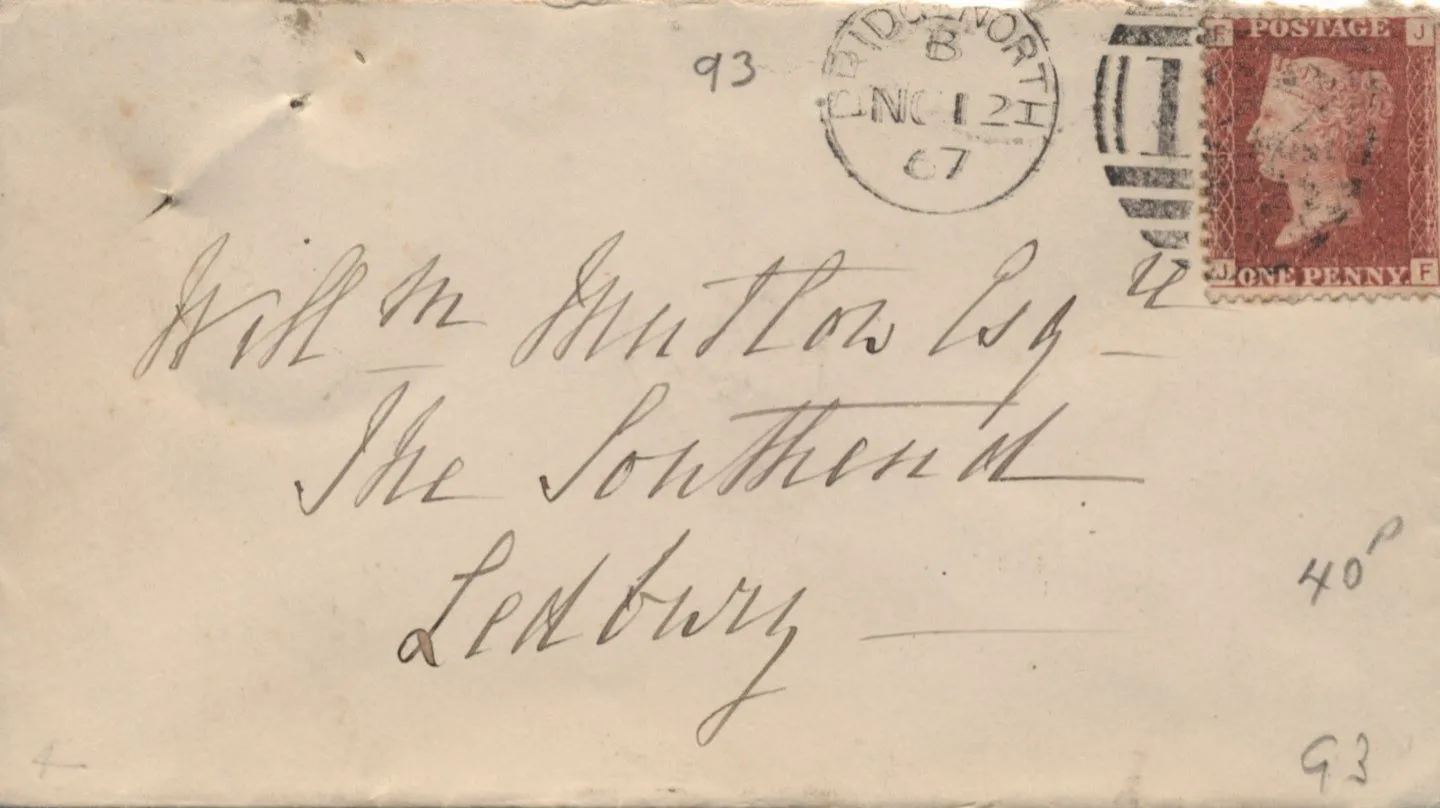 93
BRIDGNORTH
B
NO 12
67
F POSTAGE J
J ONE PENNY. F
Will m Mutlow Esq re
The Southend
Ledbury
40 P
93